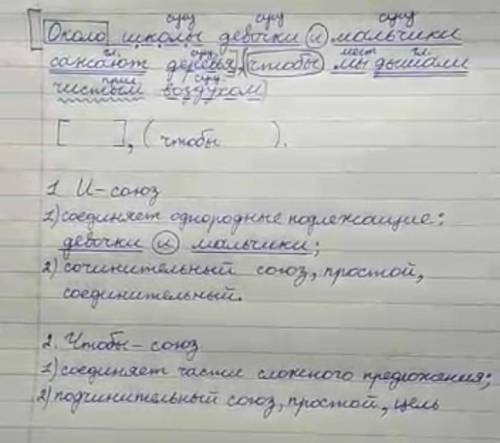 сущ сущ сущ
[Около школы девочки и мальчики
гл. сущ. мест гл.
сажают деревья], (чтобы мы дышали
прил сущ.
чистым воздухом)
[ ], (чтобы ).
1. И - союз
1) соединяет однородные подлежащие:
девочки и мальчики;
2) сочинительный союз, простой,
соединительный.
2. Чтобы - союз
1) соединяет части сложного предложения;
2) подчинительный союз, простой, цель